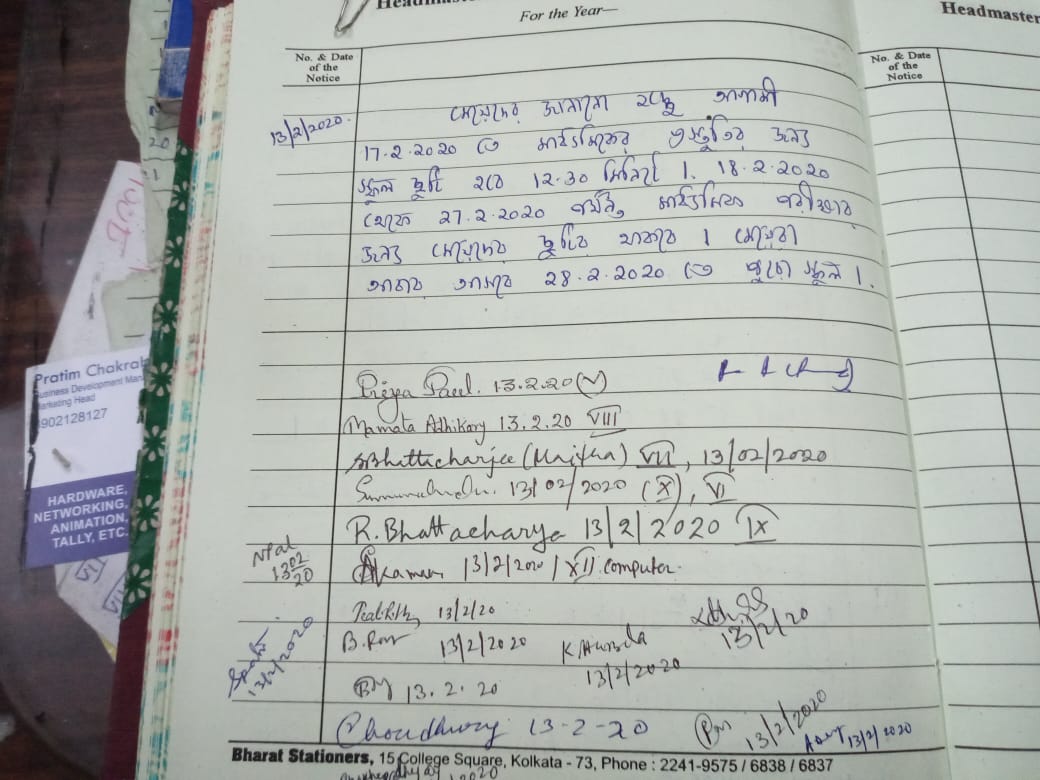 Headmaster
For the Year—
Headmaster
No. & Date
of the
Notice
No. & Date
of the
Notice
13/2/2020.
মেয়েদের জানানো হচ্ছে আগামী
17.2.2020 তে মাধ্যমিকের প্রস্তুতির জন্য
স্কুল ছুটি হবে 12.30 মিনিটে । 18.2.2020
থেকে 27.2.2020 পর্যন্ত মাধ্যমিক পরীক্ষার
জন্য মেয়েদের ছুটি থাকবে । মেয়েরা
আবার আসবে 28.2.2020 তে পুরো স্কুল ।
Priya Paul. 13.2.20 (V)
Mamata Adhikary 13.2.20 VIII
SBhattacharjee VII, 13/02/2020
13/02/2020 (X), VI
R. Bhattacharya 13/2/2020 IX
NPal
1302
20
13/2/2020 / XII computer.
13/2/20
13/2/20
B. Roy 13/2/2020
13/2/2020
13/2/2020
13.2.20
Choudhury 13-2-20
13/2/2020
13/2/2020
Pratim Chakrab
Business Development Man
Marketing Head
9902128127
HARDWARE,
NETWORKING,
ANIMATION,
TALLY, ETC.
Bharat Stationers, 15 College Square, Kolkata - 73, Phone : 2241-9575 / 6838 / 6837